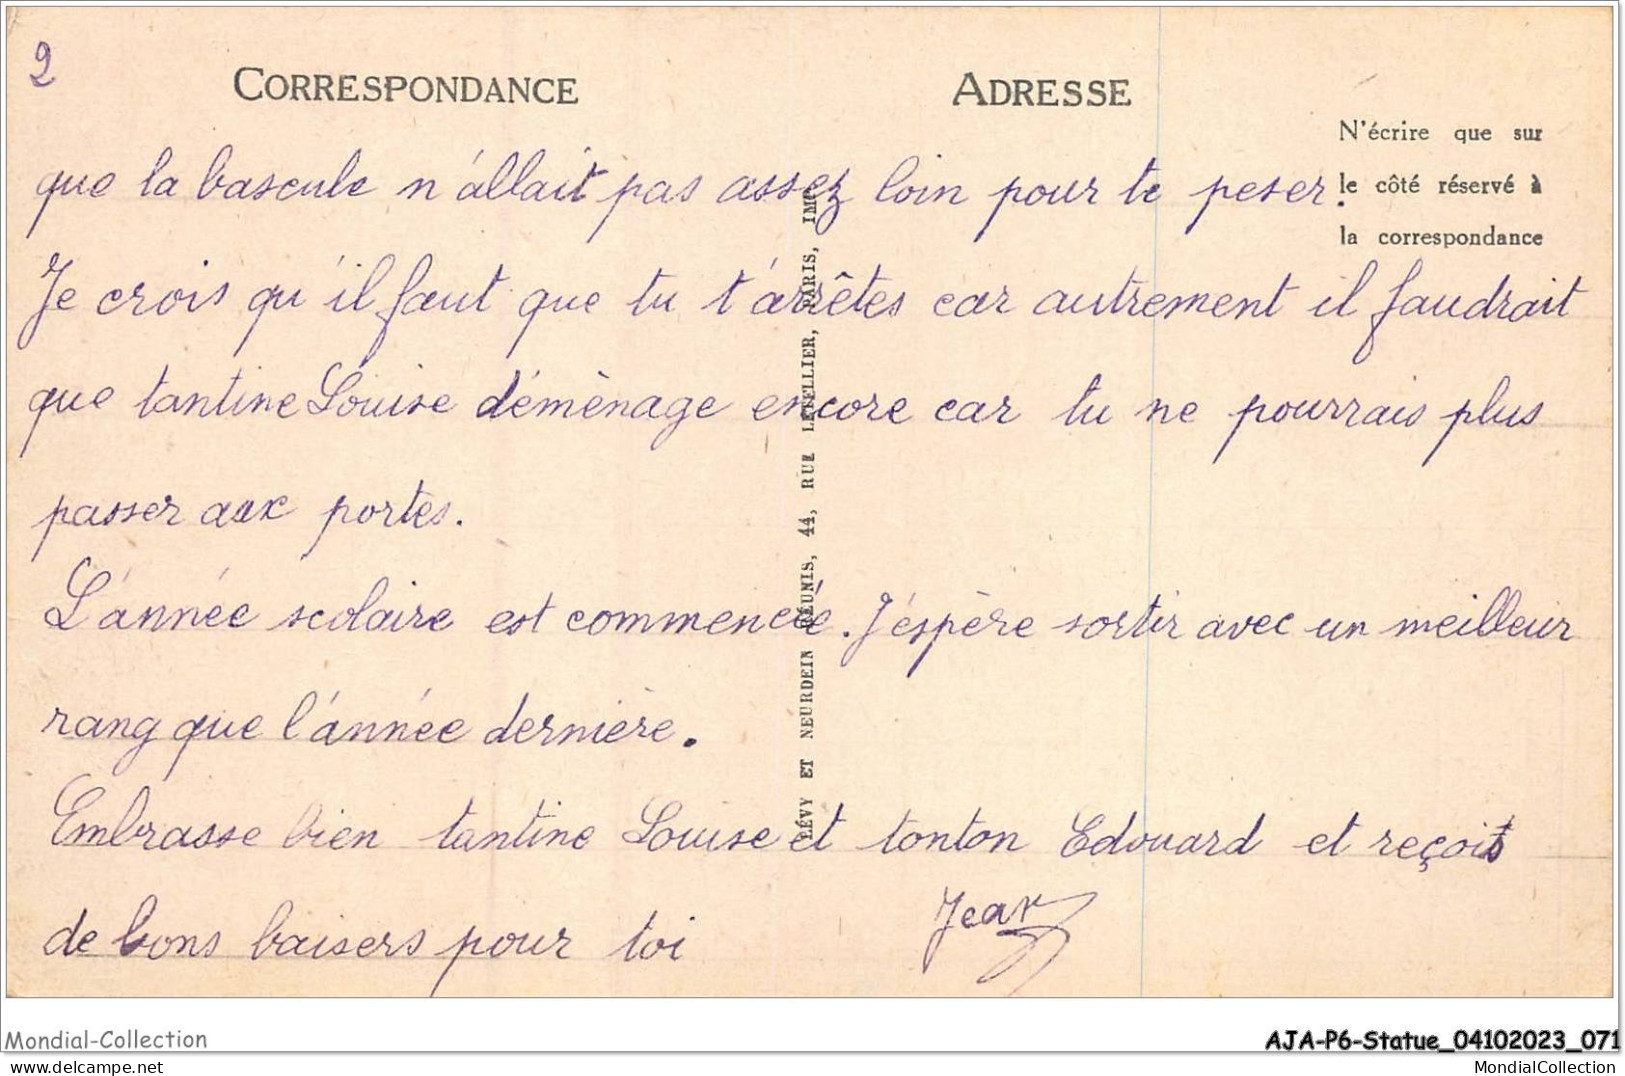 2
CORRESPONDANCE
ADRESSE
N'écrire que sur
le côté réservé à
la correspondance
que la bascule n'allait pas assez loin pour te peser.
Je crois qu'il faut que tu t'arrêtes car autrement il faudrait
que tantine Louise déménage encore car tu ne pourrais plus
passer aux portes.
L'année scolaire est commencée. J'éspère sortir avec un meilleur
rang que l'année dernière.
Embrasse bien tantine Louise et tonton Edouard et reçois
de bons baisers pour toi
Jean
LÉVY ET NEURDEIN RÉUNIS, 44, RUE LETELLIER, PARIS, IMP.
Mondial-Collection
AJA-P6-Statue_04102023_071
delcampe.net
MondialCollection